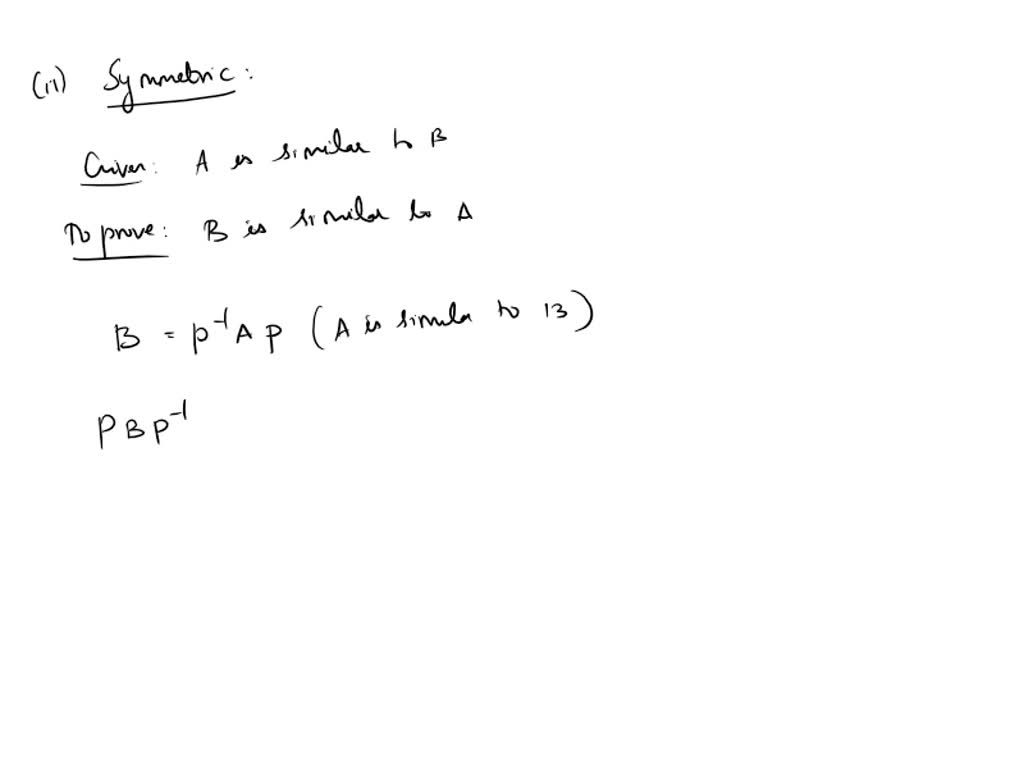 (ii) Symmetric:
Given: A is similar to B
To prove: B is similar to A
B = P⁻¹ A P (A is similar to B)
P B P⁻¹